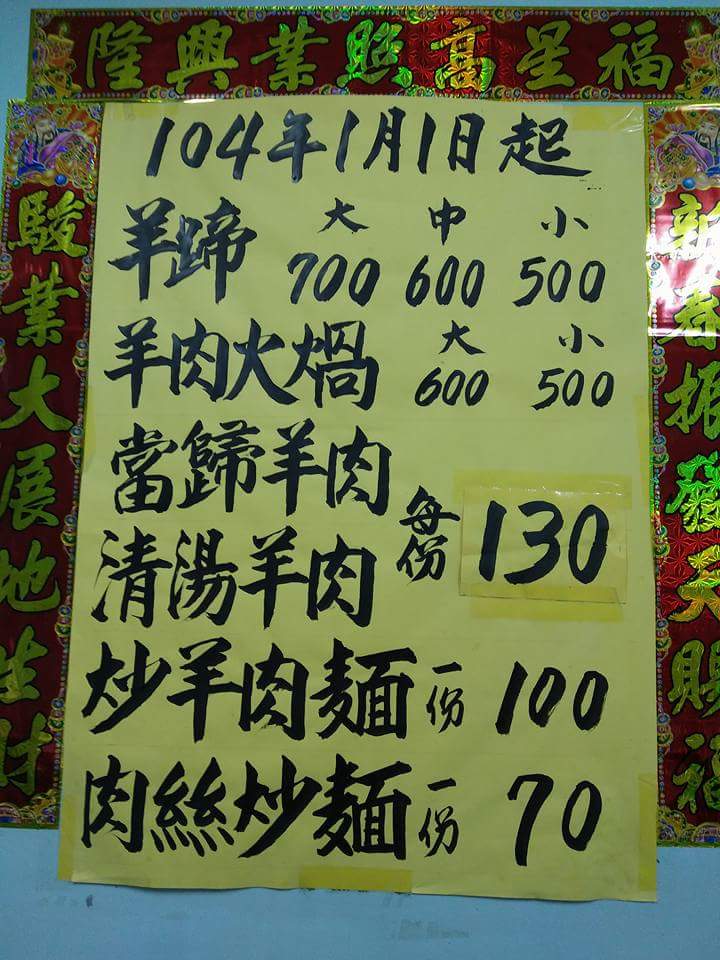 隆興業照高星福
104年1月1日起
羊蹄 大 中 小
700 600 500
羊肉火煱 大 小
600 500
當歸羊肉
清湯羊肉
每份 130
炒羊肉麵 一份 100
肉絲炒麵 一份 70
駿業大展地生財
新春振發天賜福